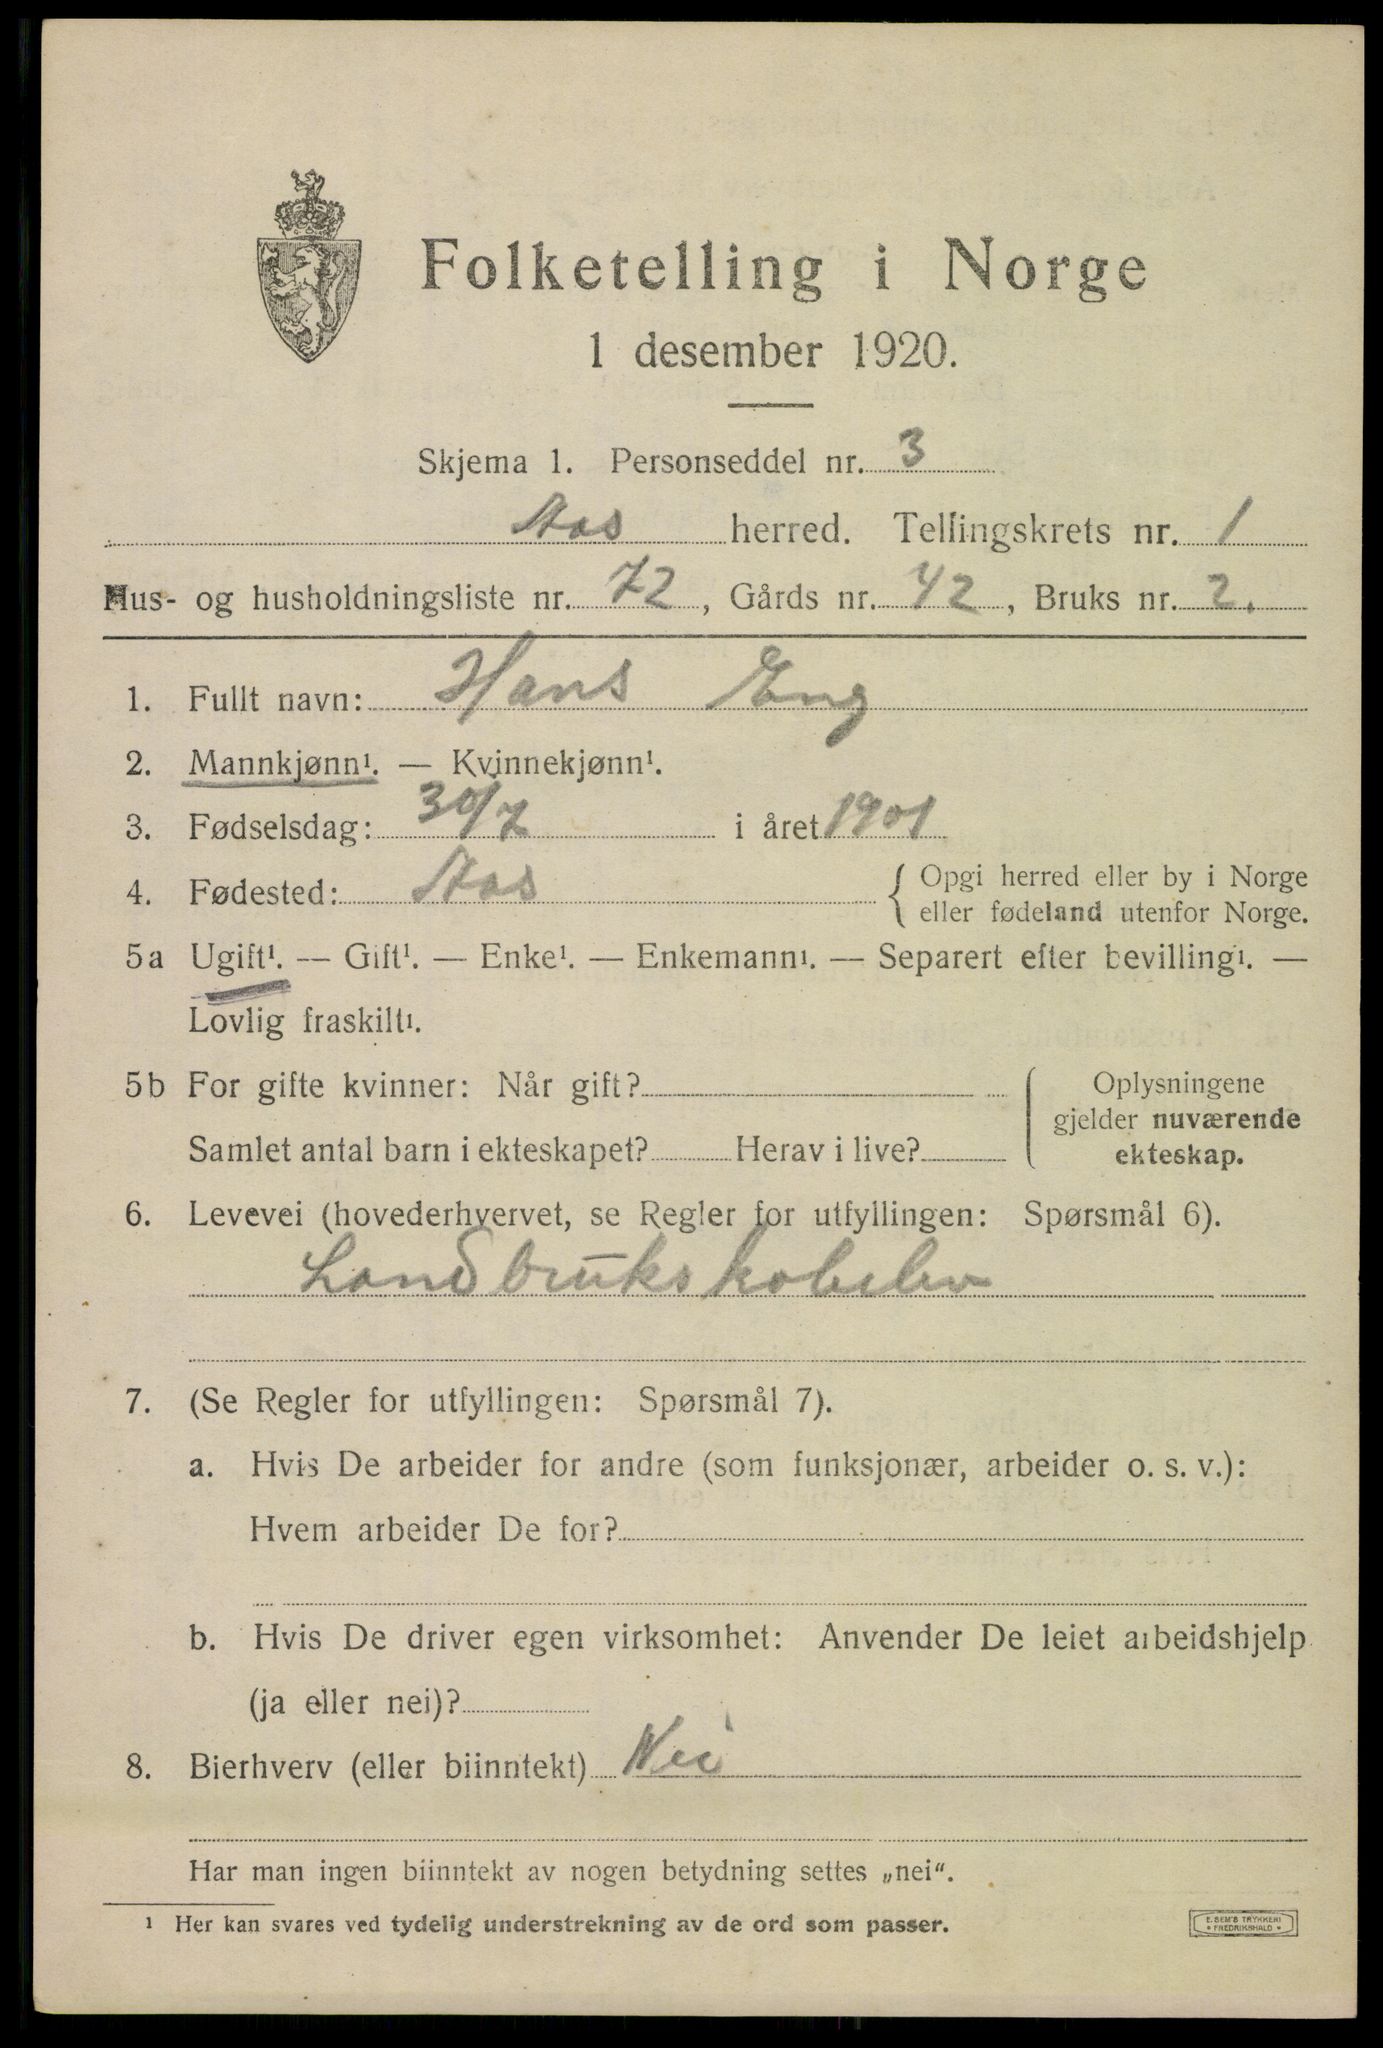 Folketelling i Norge
1 desember 1920.
Skjema 1. Personseddel nr. 3
Aas herred. Tellingskrets nr. 1
Hus- og husholdningsliste nr. 72, Gårds nr. 42, Bruks nr. 2.
1. Fullt navn: Hans Eng
2. Mannkjønn¹. — Kvinnekjønn¹.
3. Fødselsdag: 30/7 i året 1901
4. Fødested: Aas { Opgi herred eller by i Norge
eller fødeland utenfor Norge.
5a Ugift¹. — Gift¹. — Enke¹. — Enkemann¹. — Separert efter bevilling¹. —
Lovlig fraskilt¹.
5b For gifte kvinner: Når gift?
Samlet antal barn i ekteskapet? Herav i live?
Oplysningene
gjelder nuværende
ekteskap.
6. Levevei (hovederhvervet, se Regler for utfyllingen: Spørsmål 6).
Landbruksskolelev
7. (Se Regler for utfyllingen: Spørsmål 7).
a. Hvis De arbeider for andre (som funksjonær, arbeider o. s. v.):
Hvem arbeider De for?
b. Hvis De driver egen virksomhet: Anvender De leiet arbeidshjelp
(ja eller nei)?
8. Bierhverv (eller biinntekt) Nei
Har man ingen biinntekt av nogen betydning settes „nei“.
¹ Her kan svares ved tydelig understrekning av de ord som passer.
E. SEM'S TRYKKERI
• FREDRIKSHALD •